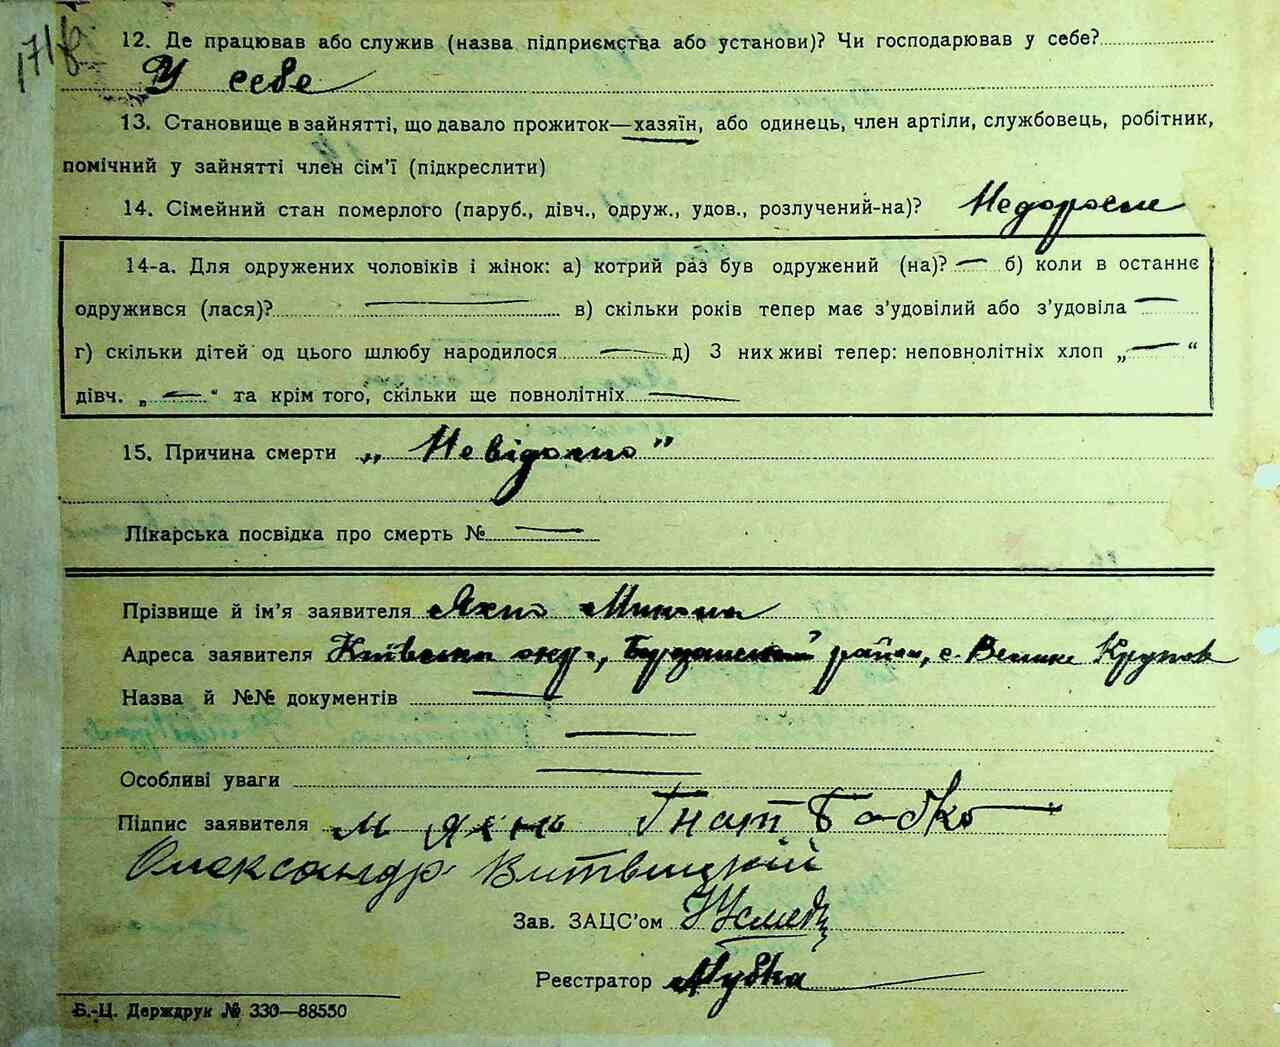 171
12. Де працював або служив (назва підприємства або установи)? Чи господарював у себе?
У себе
13. Становище в зайнятті, що давало прожиток—хазяїн, або одинець, член артіли, службовець, робітник,
помічний у зайнятті член сім'ї (підкреслити)
14. Сімейний стан померлого (паруб., дівч., одруж., удов., розлучений-на)? Недоросле
14-а. Для одружених чоловіків і жінок: а) котрий раз був одружений (на)? — б) коли в останнє
одружився (лася)? — в) скільки років тепер має з'удовілий або з'удовіла —
г) скільки дітей од цього шлюбу народилося — д) З них живі тепер: неповнолітніх хлоп „—“
дівч. „—“ та крім того, скільки ще повнолітніх —
15. Причина смерти „Невідомо”
Лікарська посвідка про смерть № —
Прізвище й ім'я заявителя Яхно Микола
Адреса заявителя Київська окр., район, с. Велике Крупов
Назва й №№ документів —
—
Особливі уваги —
Підпис заявителя М Яхнь Гнат Бабко
Олександр Витвицкій
Зав. ЗАЦС'ом
Реєстратор
Б.-Ц. Держдрук № 330—88550